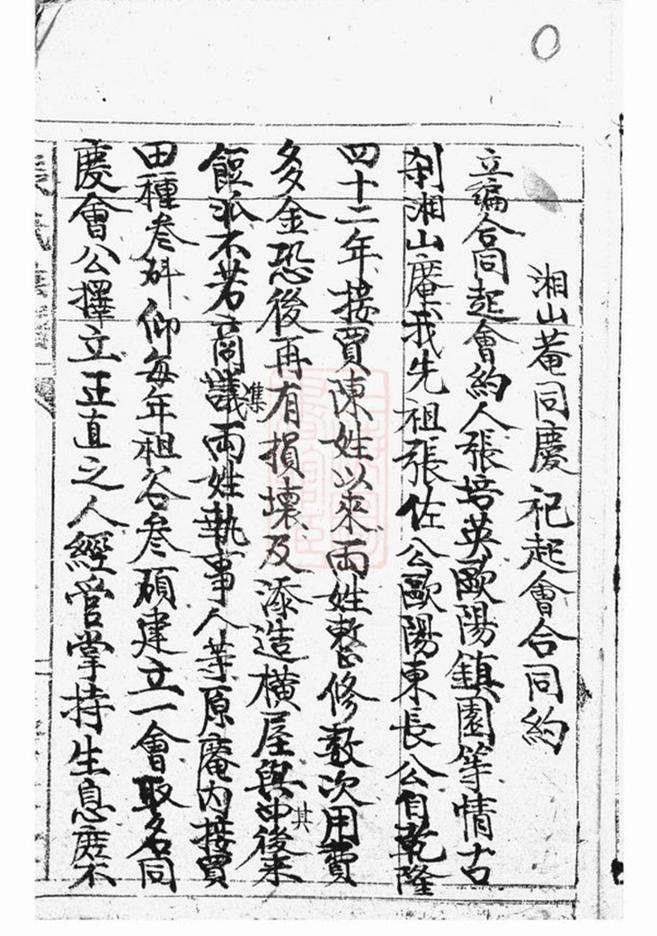 湘山菴同慶祀起會合同約
立編合同起會約人張培英歐陽鎮園等情古
刹湘山庵我先祖張佐公歐陽東長公自乾隆
四十二年接買陳姓以來兩姓整修數次用費
多金恐後再有損壞及添造橫屋與其後來
不若商議集兩姓執事人等原庵內接買
田種叁斗仰每年租谷叁碩建立一會取名同
慶會公擇立正直之人經管掌持生息庶不